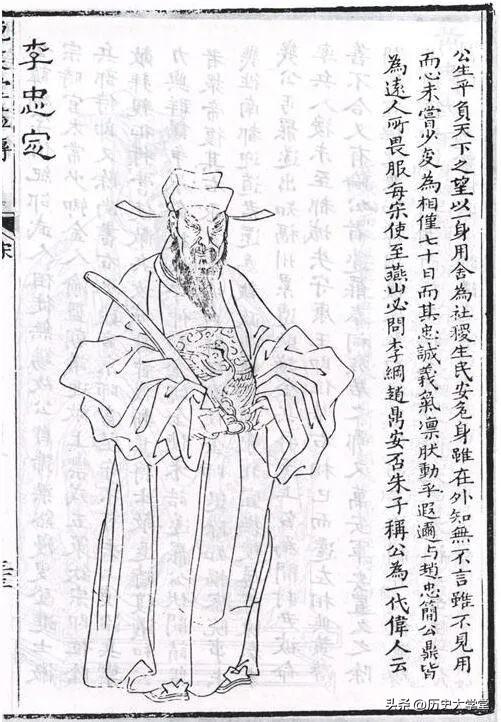 公生平負天下之望以一身用舍為社稷生民安危身雖在外知無不言雖不見用
而心未嘗少变為相僅七十日而其忠誠義氣凛肰動乎遐邇与趙忠簡公鼎皆
為遠人所畏服每宋使至燕山必問李綱趙鼎安否朱子稱公為一代偉人云
李忠㝎
头条 @历史大学堂